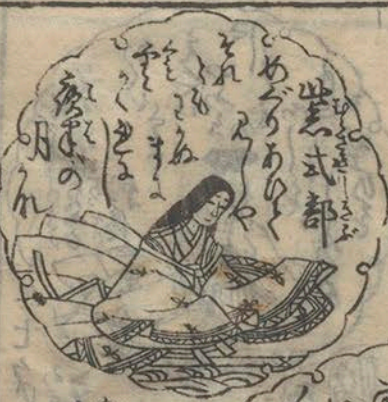 むらさきしきぶ
紫式部
めぐりあひて
見しや
それ
とも
わかぬ
まに
雲
がくれに
し
夜半の
月かな